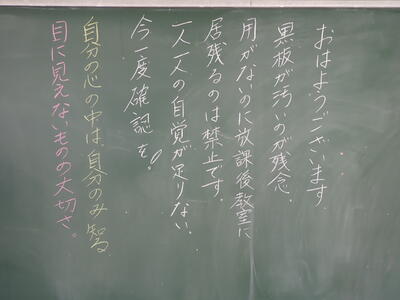 おはようございます
黒板が汚いのが残念。
用がないのに放課後教室に
居残るのは禁止です。
一人一人の自覚が足りない。
今一度確認を!
自分の心の中は、自分のみ知る
目に見えないものの大切さ。